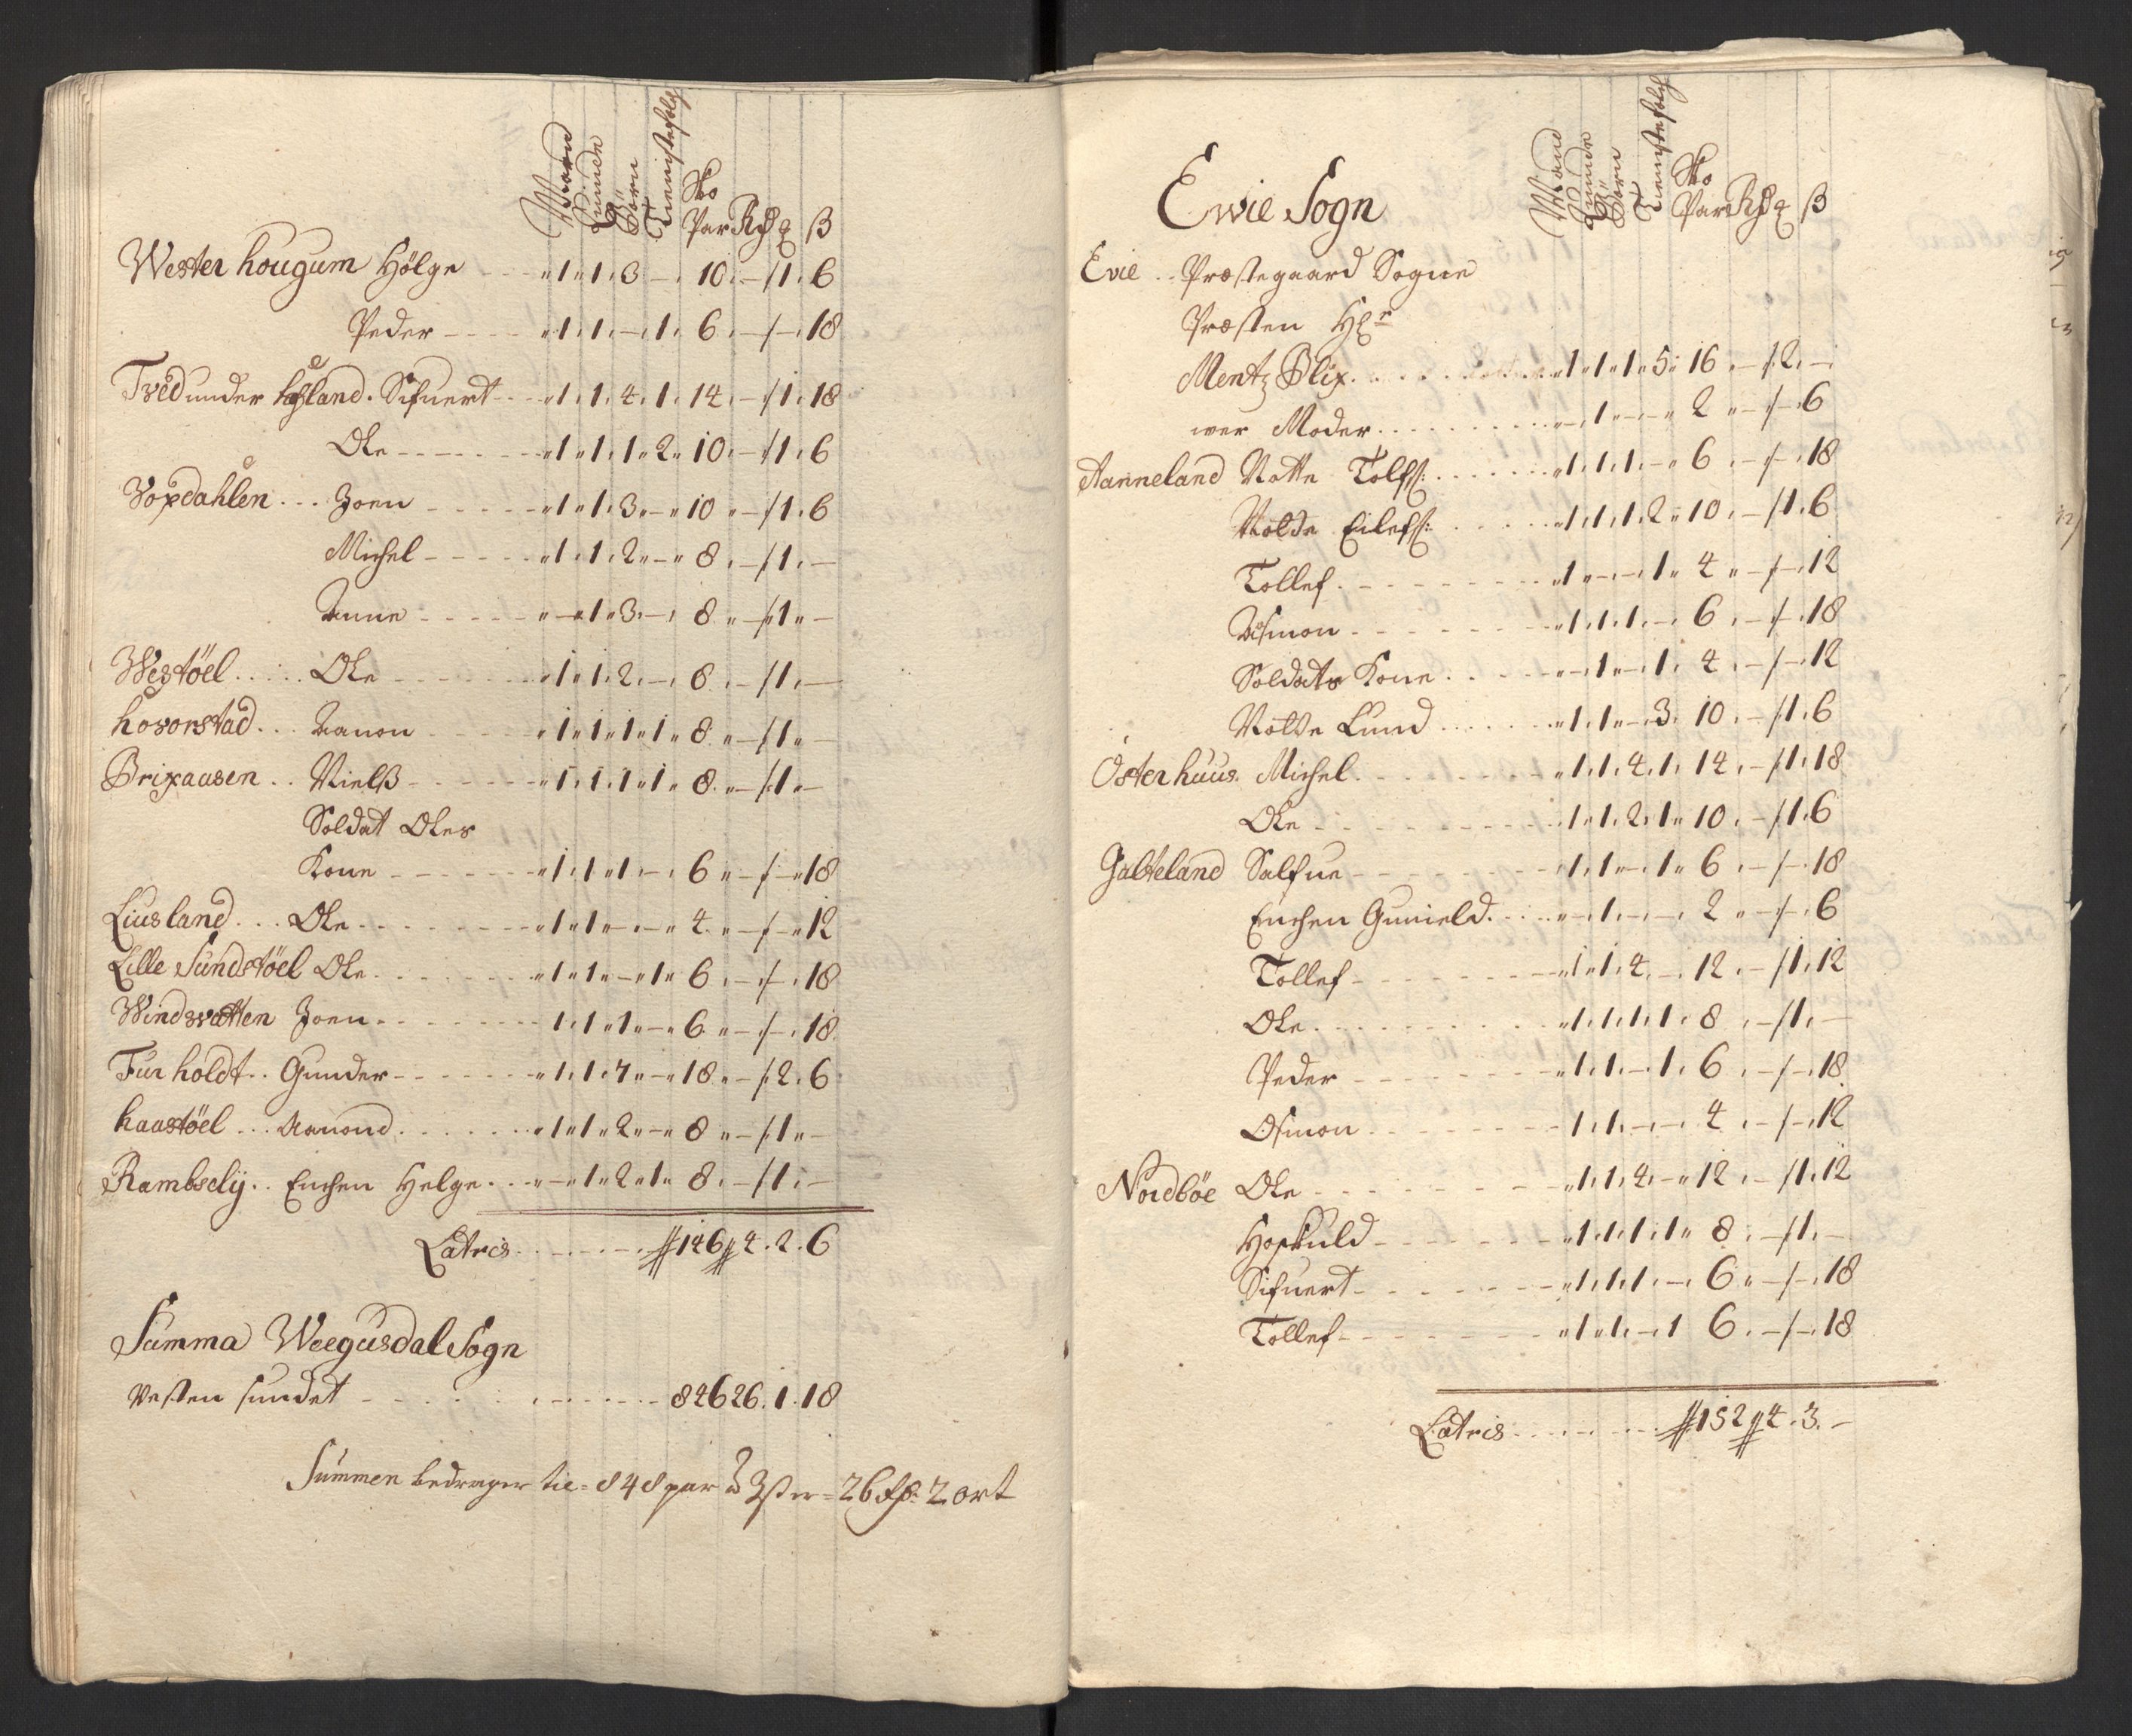 Mand Quinde Börn Tienistefolch Sko Par Rd q ß
Wester hougum Hölge - - - 1 1 3 - 10 - 1 6
Peder - - - 1 1 - 1 6 - - 18
Tved under hegland . Sifuert - - 1 1 4 1 14 - 1 18
Ole - - - 1 1 1 2 10 - 1 6
Voxdahlen . . . Joen - - - 1 1 3 - 10 - 1 6
Michel - - - 1 1 2 - 8 - 1 -
Anne - - - - 1 3 - 8 - 1 -
Westöel . . . Ole - - - 1 1 2 - 8 - 1 -
hovorstad . . . Aanon - - - 1 1 1 1 8 - 1 -
Brixaasen . . Nielß - - - 1 1 1 1 8 - 1 -
Soldat Oles
Kone - - - 1 1 1 - 6 - - 18
Liusland . . . Ole - - - 1 1 - - 4 - - 12
Lille Sundstöel Ole - - - 1 1 - 1 6 - - 18
Windsvatten Joen - - - 1 1 1 - 6 - - 18
Furholdt . . Gunder - - - 1 1 7 - 18 - 2 6
haastöel . . . Aanond - - - 1 1 2 - 8 - 1 -
Rambsely . . Enchen Helge . . . - 1 2 1 8 - 1 -
Latris . . . . . 146 4 . 2 . 6
Summa Weegusdal Sogn
Vesten sundet - - - 846 26 . 1 . 18
Summen bedrager til = 848 par a 3 ß er = 26 rd: 2 ort
Mand Quinde Börn Tienstefolch Sko Par Rd q ß
Ewie Sogn
Evie . . Præstegaard Sogne
Præsten Hr
Mentz Blix . . . . 1 1 1 5 16 - 2 -
wer Moder . . . . - 1 - - 2 - - 6
Aanneland Notte Tolfs: . . . . 1 1 1 - 6 - - 18
Nolde Eilefs: . . . . 1 1 1 2 10 - 1 6
Tollef . - - - 1 - - 1 4 - - 12
Asmon - - - 1 1 1 - 6 - - 18
Soldats Kone . . . - 1 - 1 4 - - 12
Notte Lund . . . . 1 1 - 3 10 - 1 6
Österhuus . Michel . - - - 1 1 4 1 14 - 1 18
Ole - - - 1 1 2 1 10 - 1 6
Galteland Salfue - - - 1 1 - 1 6 - - 18
Enchen Gunield . . . . - 1 - - 2 - - 6
Tollef - - - 1 1 4 - 12 - 1 12
Ole . . . . 1 1 1 1 8 - 1 -
Peder - - - 1 1 - 1 6 - - 18
Osmon . . . . 1 1 - - 4 - - 12
Nordböe Ole - - - 1 1 4 - 12 - 1 12
Hoskuld - - - 1 1 1 1 8 - 1 -
Sifuert - - - 1 1 1 - 6 - - 18
Tollef - - - 1 1 - 1 6 - - 18
Latris . . . . . 152 4 . 3 . -